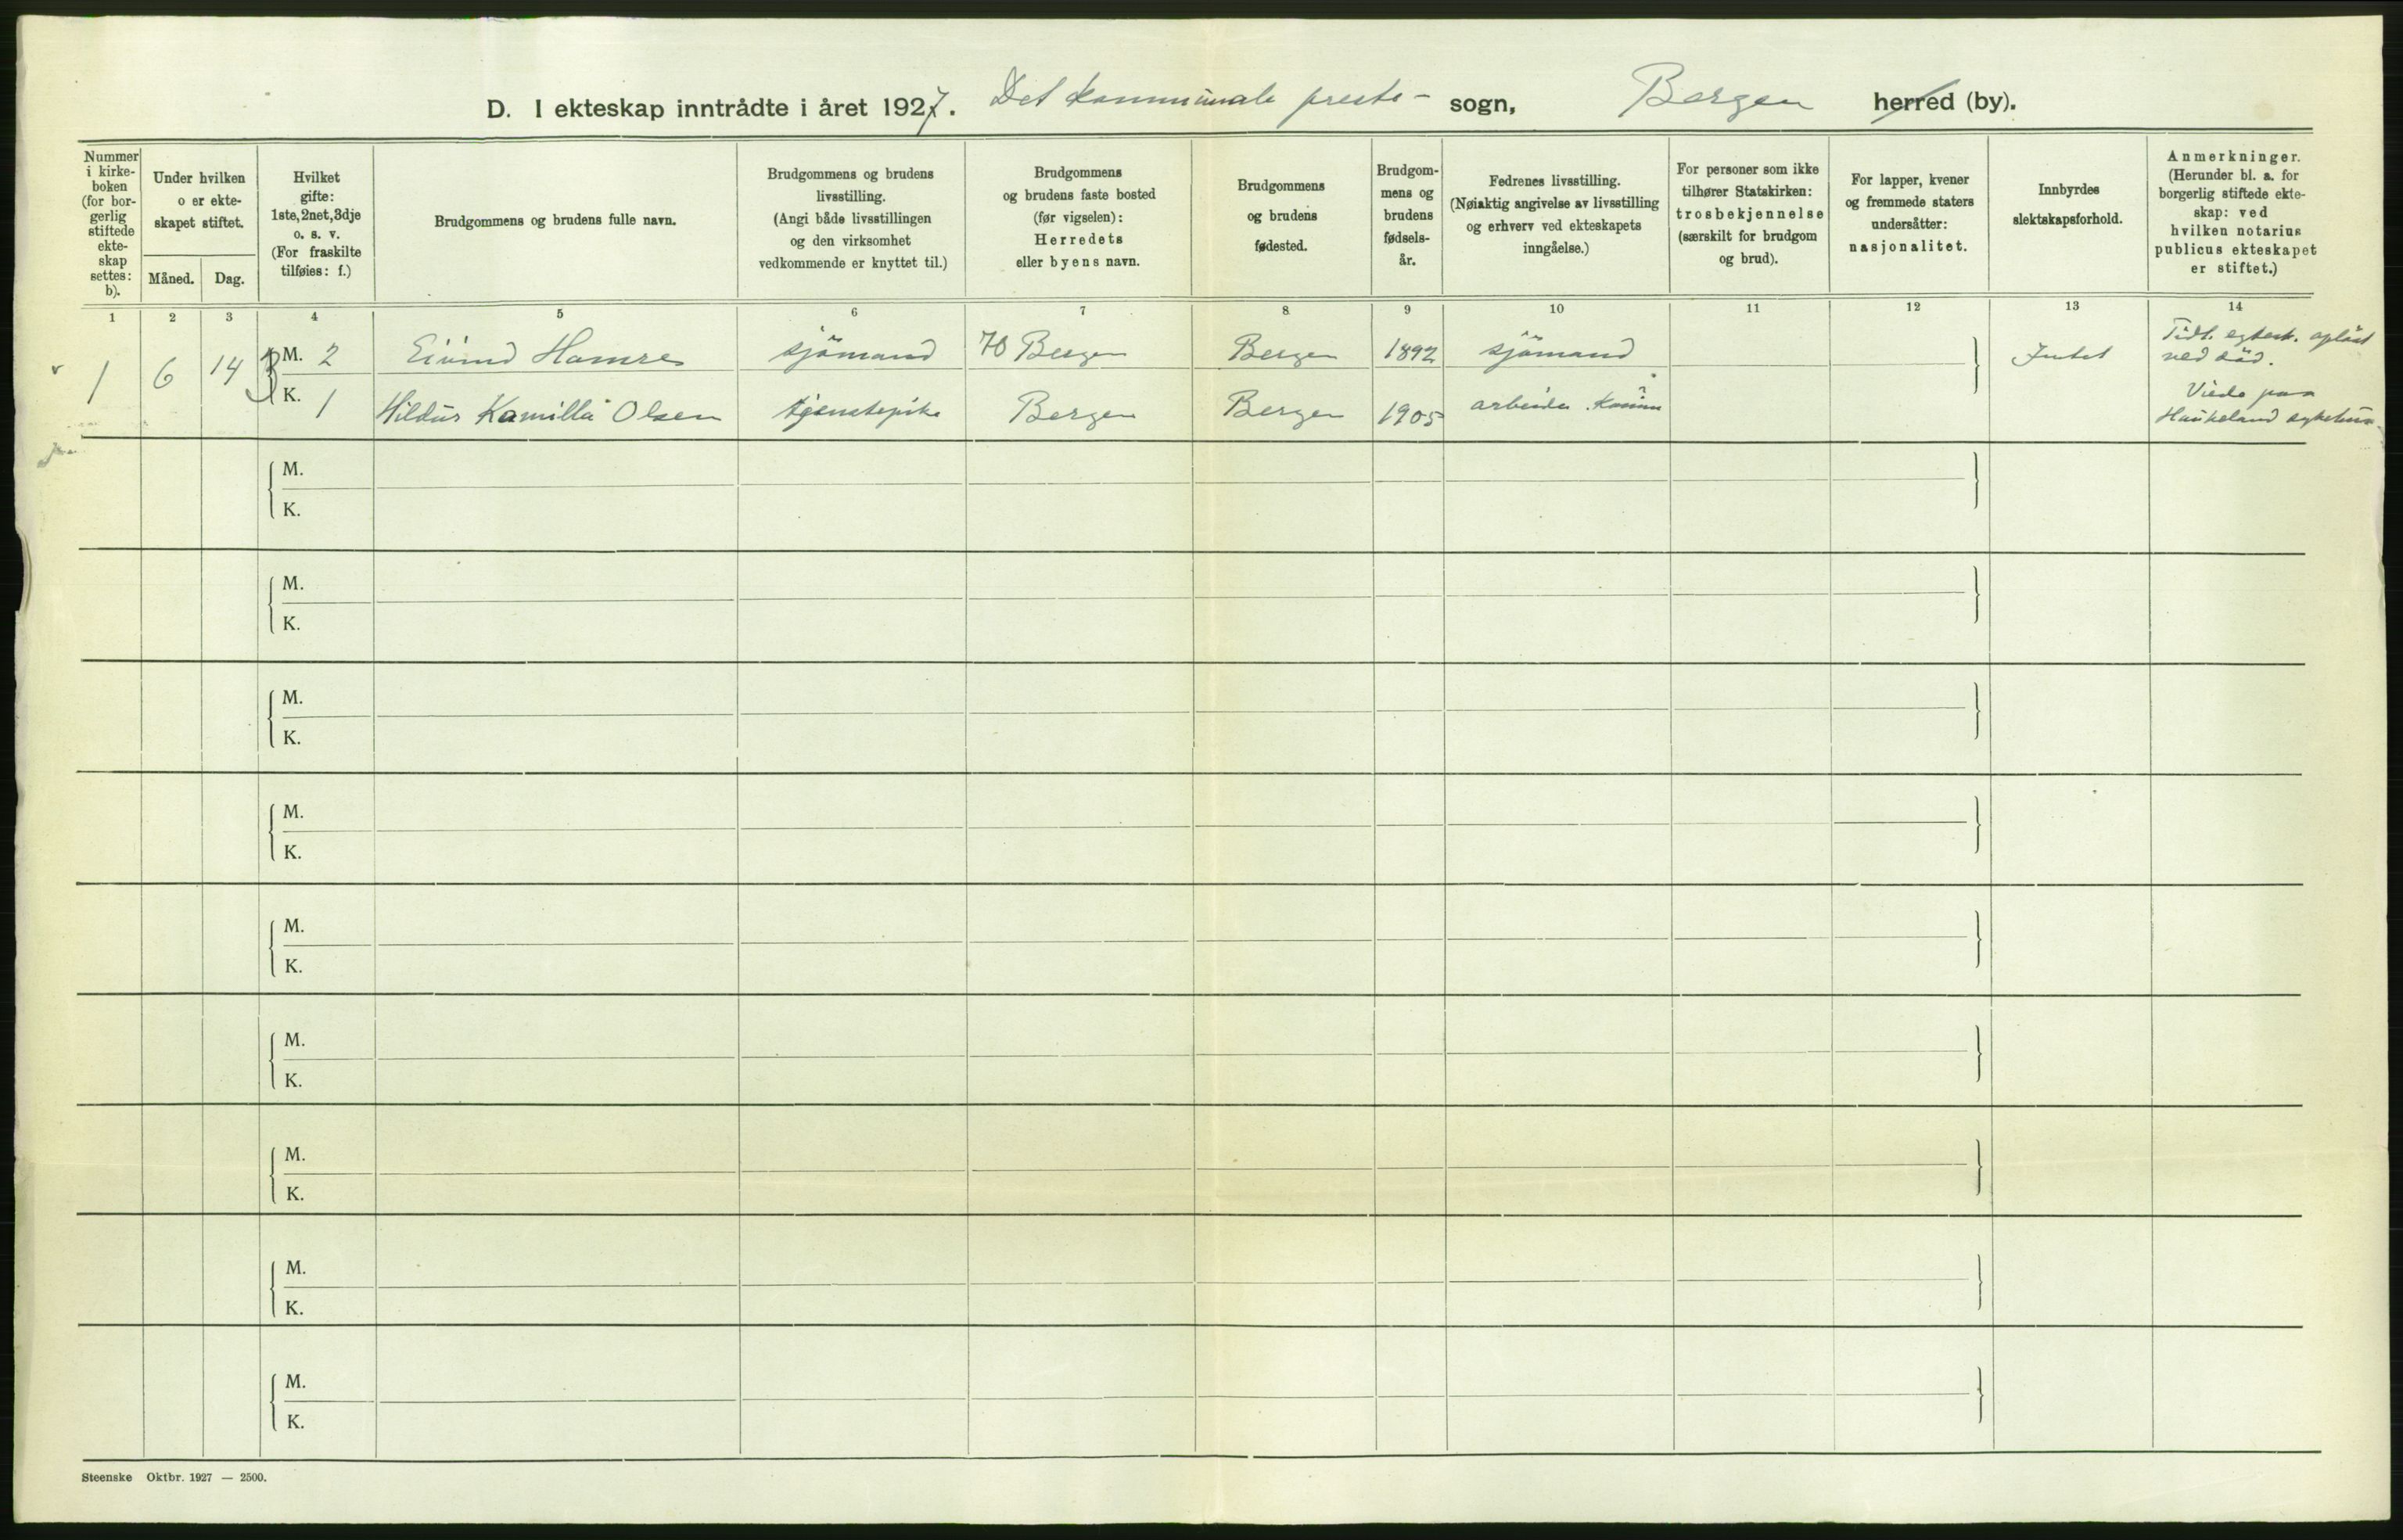 D. I ekteskap inntrådte i året 1927. Det kommunale preste- sogn, Bergen herred (by).
Nummer i kirke-boken (for bor-gerlig stiftede ekte-skap settes: b).
Under hvilken o er ekte-skapet stiftet.
Måned. Dag.
Hvilket gifte: 1ste, 2net, 3dje o. s. v. (For fraskilte tilføies: f.)
Brudgommens og brudens fulle navn.
Brudgommens og brudens livsstilling. (Angi både livsstillingen og den virksomhet vedkommende er knyttet til.)
Brudgommens og brudens faste bosted (før vigselen): Herredets eller byens navn.
Brudgommens og brudens fødested.
Brudgom-mens og brudens fødsels-år.
Fedrenes livsstilling. (Nøiaktig angivelse av livsstilling og erhverv ved ekteskapets inngåelse.)
For personer som ikke tilhører Statskirken: trosbekjennelse (særskilt for brudgom og brud).
For lapper, kvener og fremmede staters undersåtter: nasjonalitet.
Innbyrdes slektskapsforhold.
Anmerkninger. (Herunder bl. a. for borgerlig stiftede ekte-skap: ved hvilken notarius publicus ekteskapet er stiftet.)
1 2 3 4 5 6 7 8 9 10 11 12 13 14
1 6 14 M. 2 Eivind Hamre sjömand 70 Bergen Bergen 1892 sjömand Intet Tidl. egtesk. oplöst ved död.
K. 1 Hildur Kamilla Olsen tjenstepike Bergen Bergen 1905 arbeider Viede paa Haukeland sykehus
M.
K.
M.
K.
M.
K.
M.
K.
M.
K.
M.
K.
M.
K.
M.
K.
M.
K.
Steenske Oktbr. 1927 — 2500.